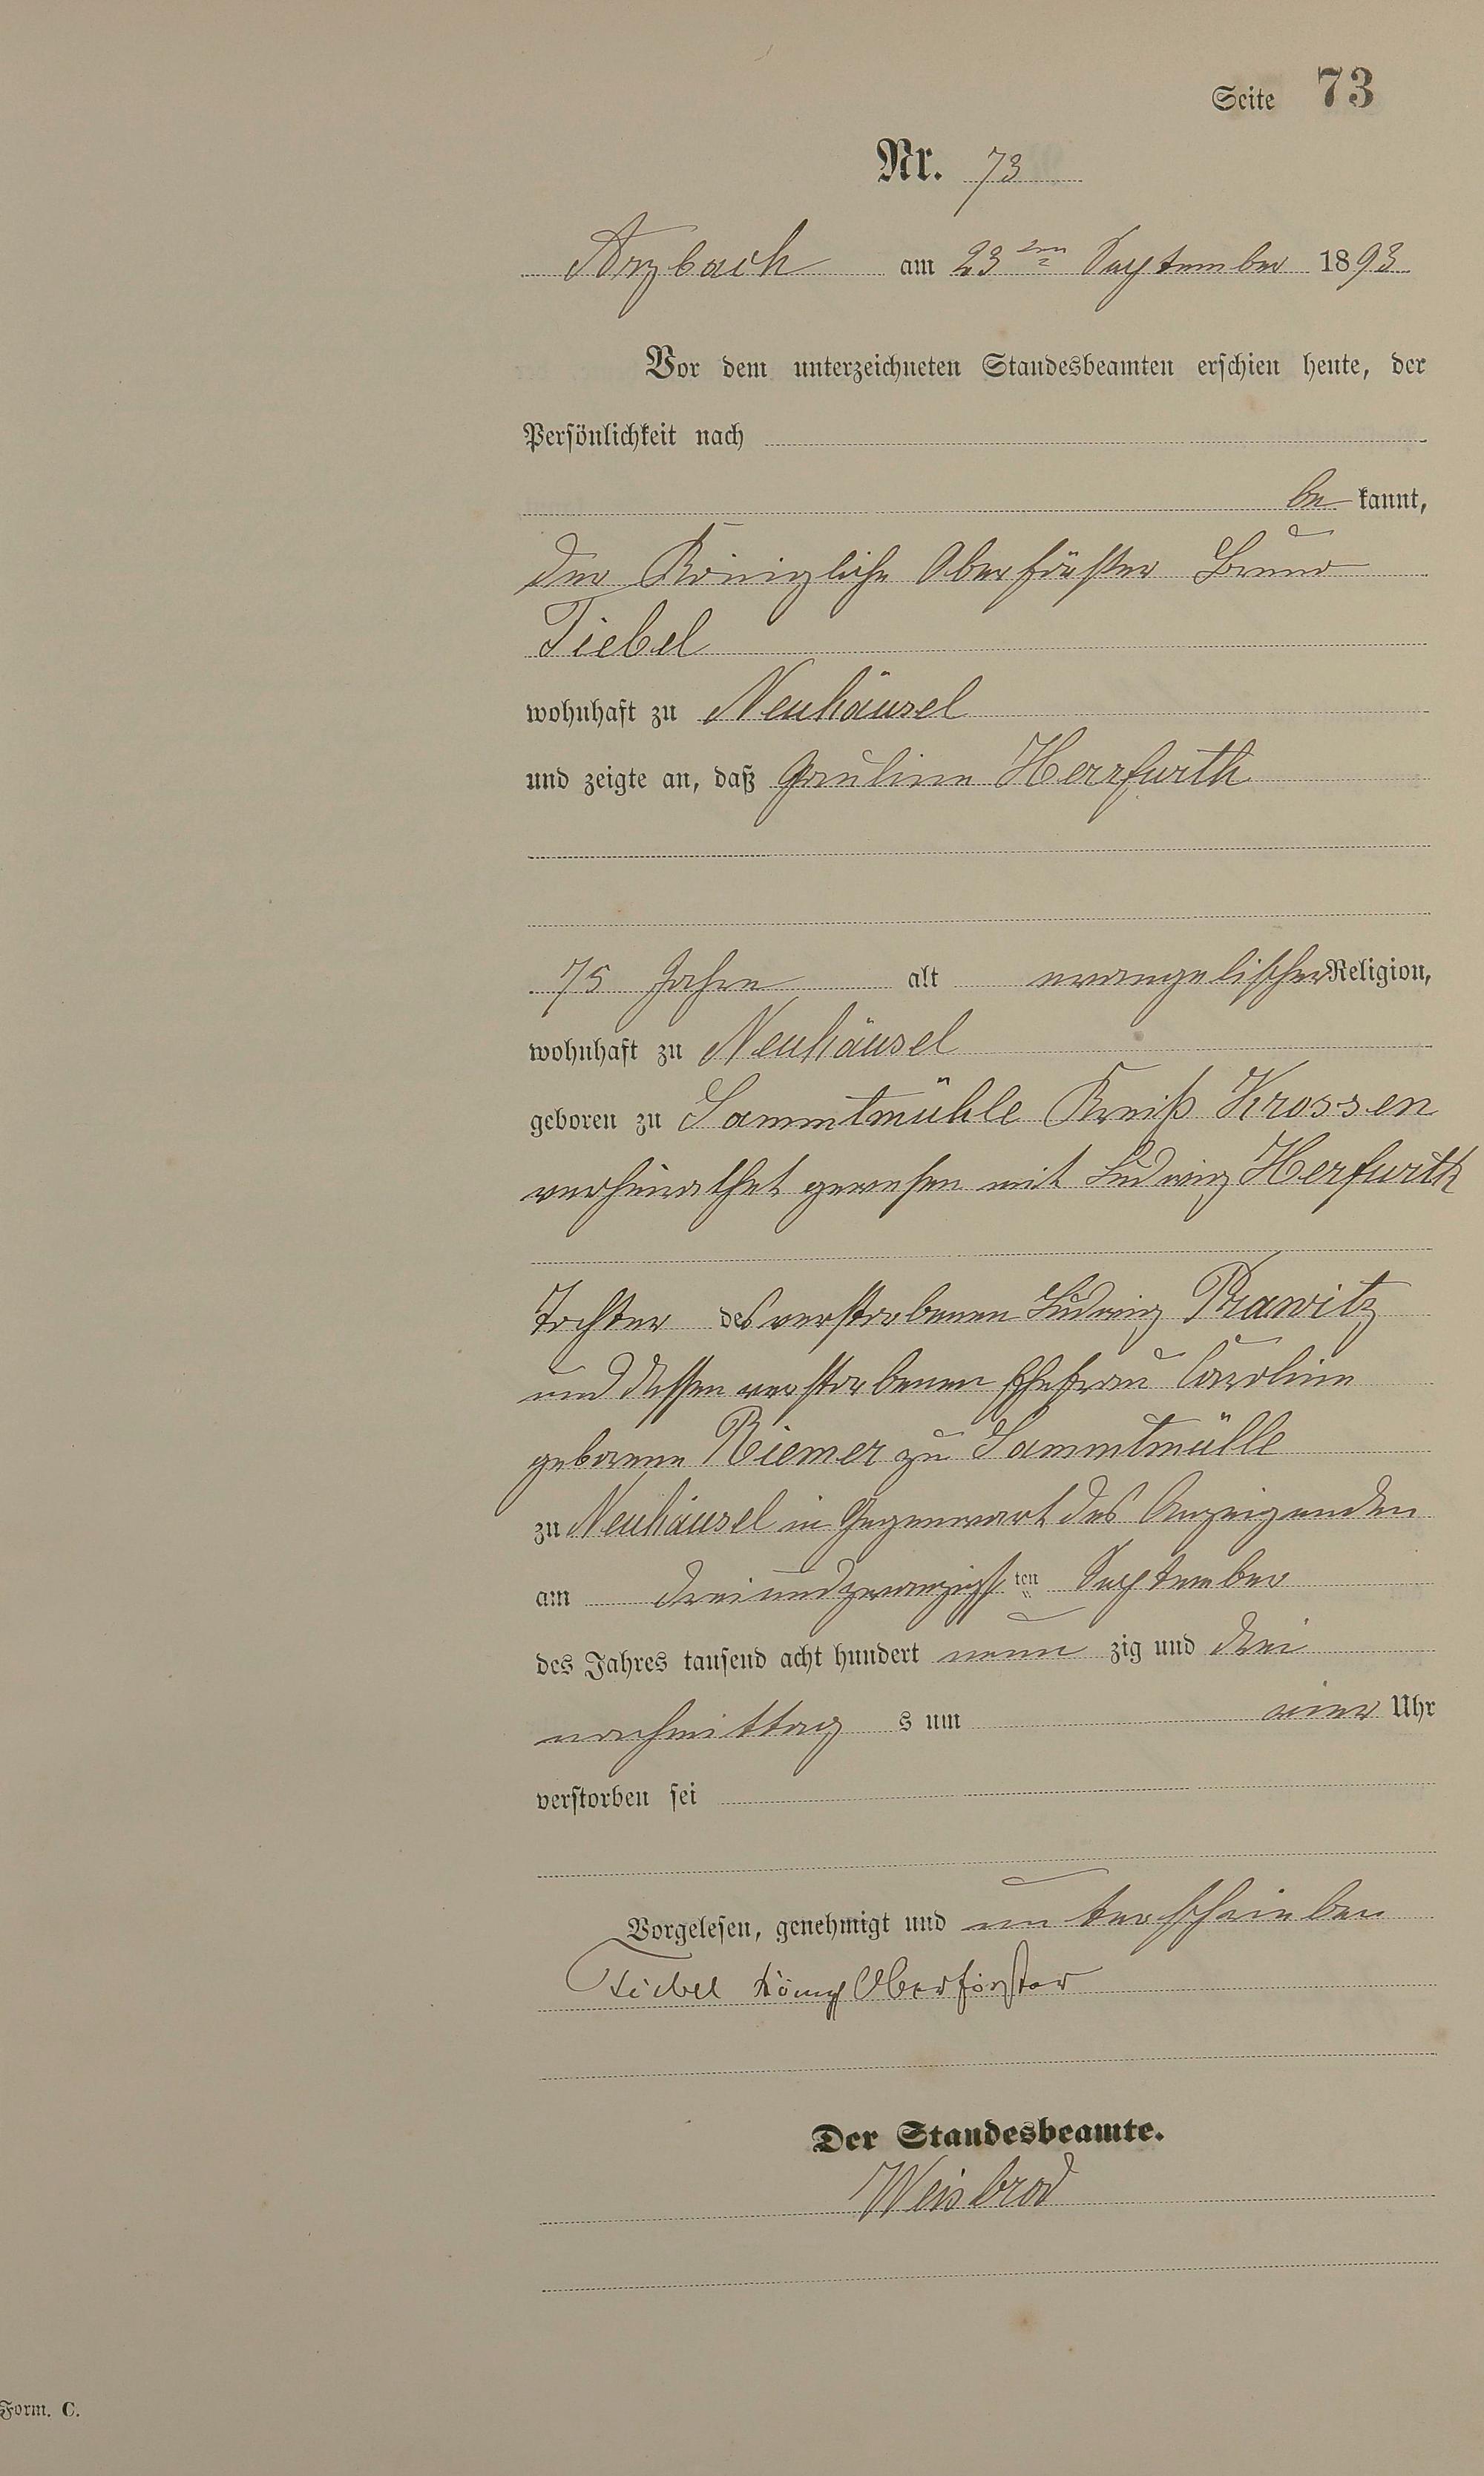 Seite 73
Nr. 73
Arzbach am 23ten September 1893
Vor dem unterzeichneten Standesbeamten erschien heute, der
Persönlichkeit nach
be kannt,
der Königliche Oberförster Bruno
Tiebel
wohnhaft zu Neuhäusel
und zeigte an, daß Pauline Herrfurth
75 Jahre alt evangelischer Religion,
wohnhaft zu Neuhäusel
geboren zu Sammtmühle Kreiß Krossen
verheirathet gewesen mit Ludwig Herfurth
Tochter des verstorbenen Ludwig Prawitz
und dessen verstorbenen Ehefrau Caroline
geborene Riemer zu Sammtmülle
zu Neuhäusel in Gegenwart des Anzeigenden
am dreiundzwanzigsten September
des Jahres tausend acht hundert neun zig und drei
nachmittag s um vier Uhr
verstorben sei
Vorgelesen, genehmigt und unterschrieben
Tiebel Königl Oberförster
Der Standesbeamte.
Weisbrod
Form. C.